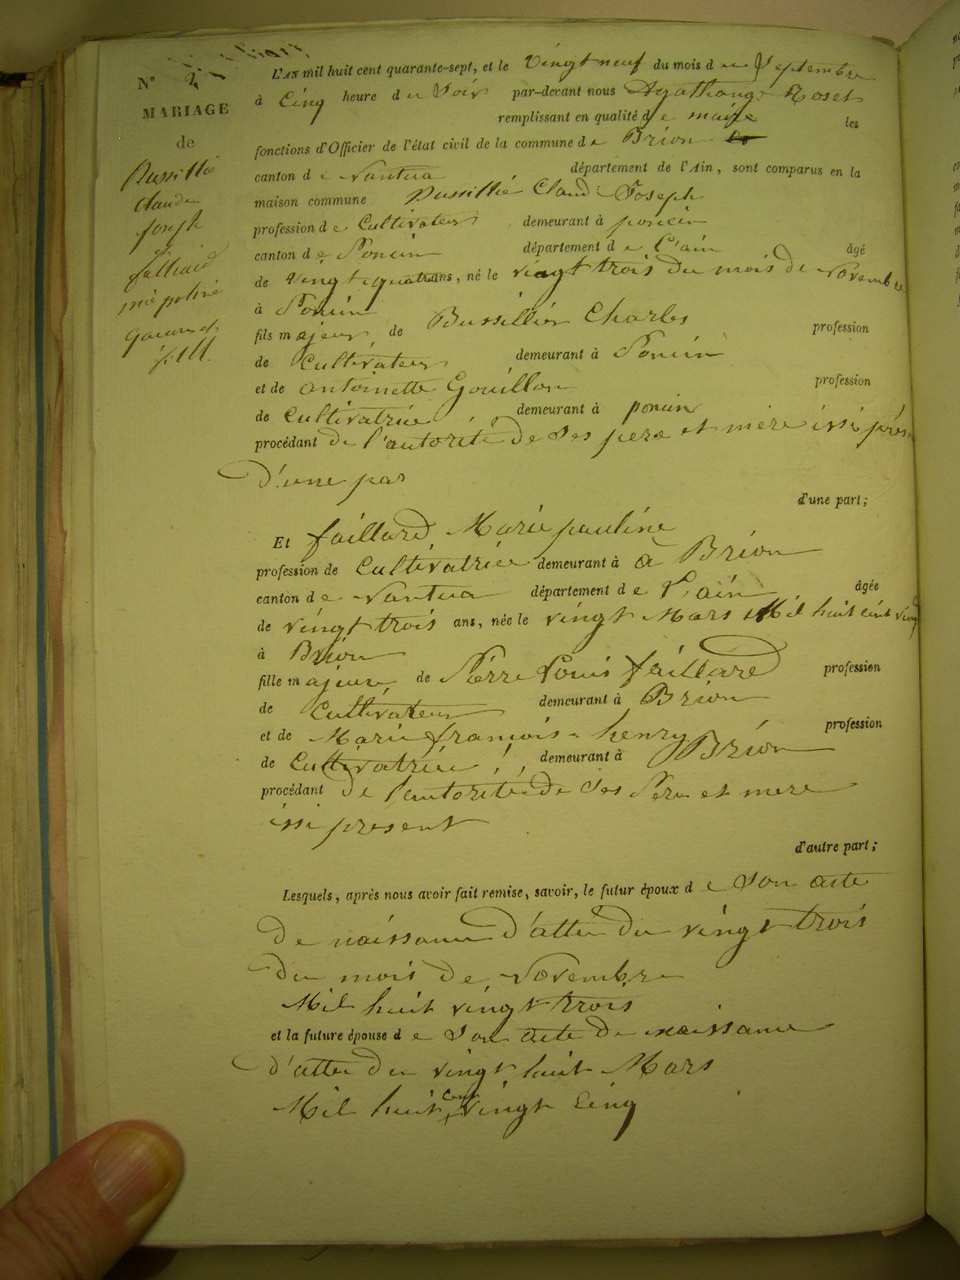 N° 2
MARIAGE
de
Bussillié
Claude
joseph
falliard
marie poline
L'AN mil huit cent quarante-sept, et le Vingt neuf du mois de Septembre
à Cinq heure du Soir par-devant nous Agathange Roset
remplissant en qualité de maire les
fonctions d'Officier de l'état civil de la commune de Brion
canton de Nantua département de l'Ain, sont comparus en la
maison commune Bussillié Claude Joseph
profession de Cultivateur demeurant à poncin
canton de Poncin département de L'ain âgé
de vingt quatre ans, né le vingt trois du mois de Novembre
à Poncin
fils majeur de Bussillier Charles profession
de Cultivateur demeurant à Poncin
et de antoinette Gouillon profession
de Cultivatrice demeurant à poncin
procédant de l'autorité de Ses pere et mere issi prés
d'une par
d'une part;
Et faillard Marie pauline
profession de Cultivatrice demeurant à à Brion
canton de Nantua département de L'ain âgée
de vingt trois ans, née le vingt Mars Mil huit cent ving
à Brion
fille majeure de Pierre Louis faillard profession
de Cultivateur demeurant à Brion
et de Marie françoise henry profession
de Cultivatrice demeurant à Brion
procédant de l'autorité de Ses Pere et mere
issi present
d'autre part;
Lesquels, après nous avoir fait remise, savoir, le futur époux de Son acte
de naissance d'atter du vingt trois
du mois de Novembre
Mil huit vingt trois
et la future épouse de Son acte de naissance
d'atter du vingt huit Mars
Mil huit Cent vingt Cinq